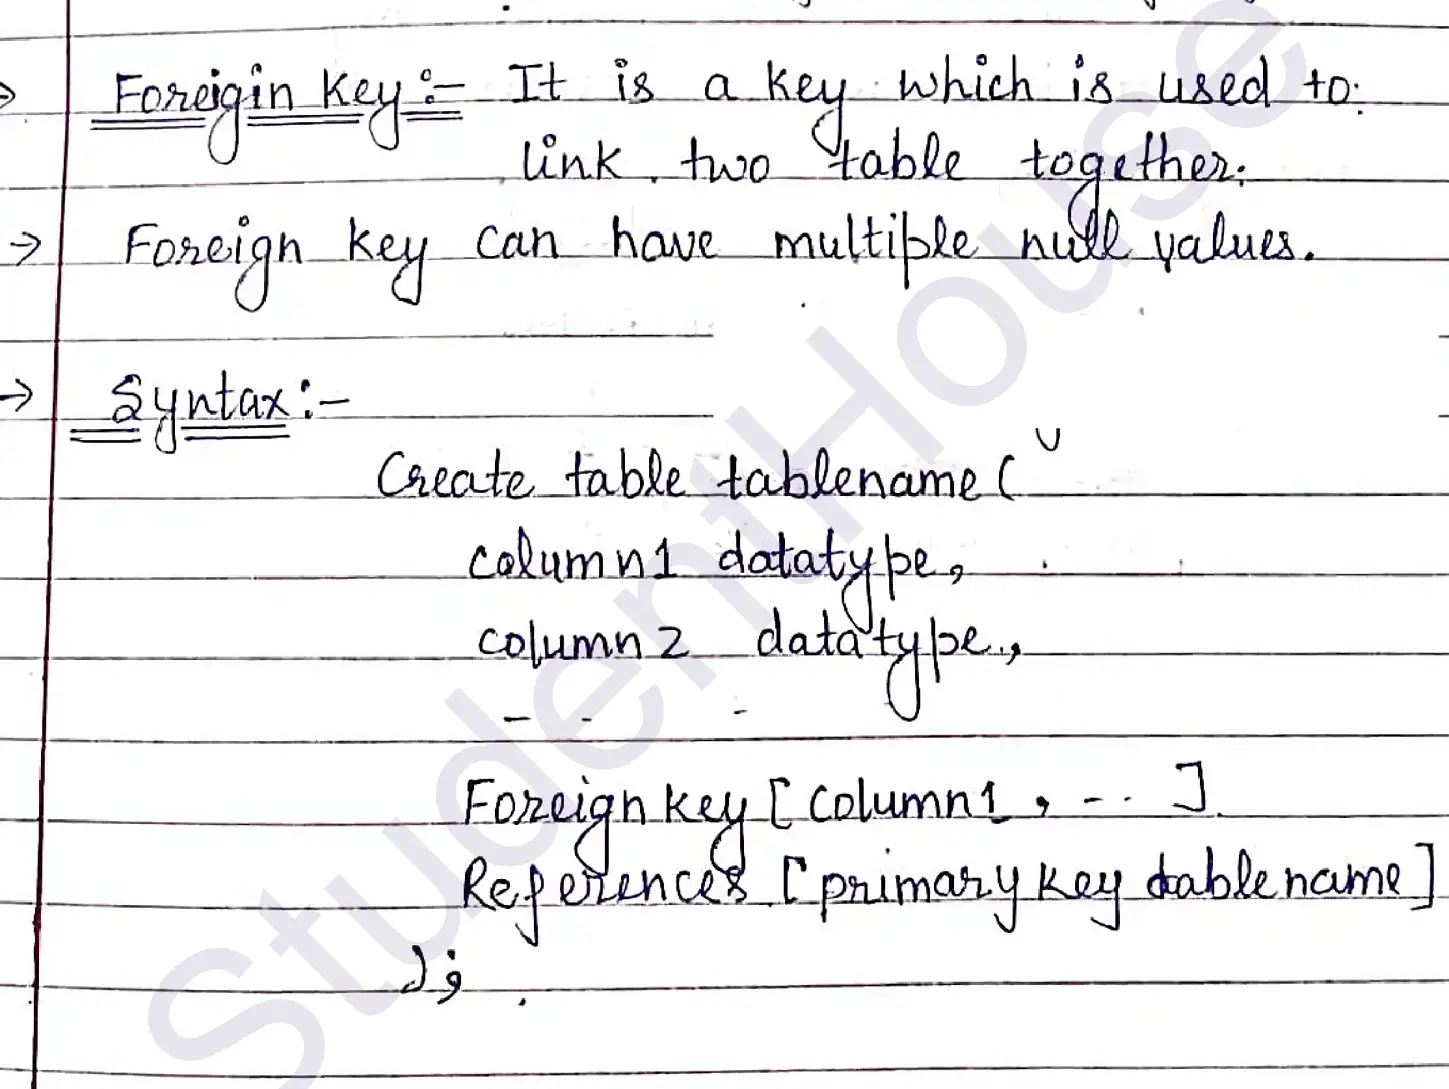 → Foreigin Key :- It is a key which is used to
link two table together.
→ Foreign key can have multiple null values.
→ Syntax :-
Create table tablename (
column1 datatype,
column2 datatype,
- - -
Foreign key [column1, -..]
References [primary key tablename]
);
StudentHouse